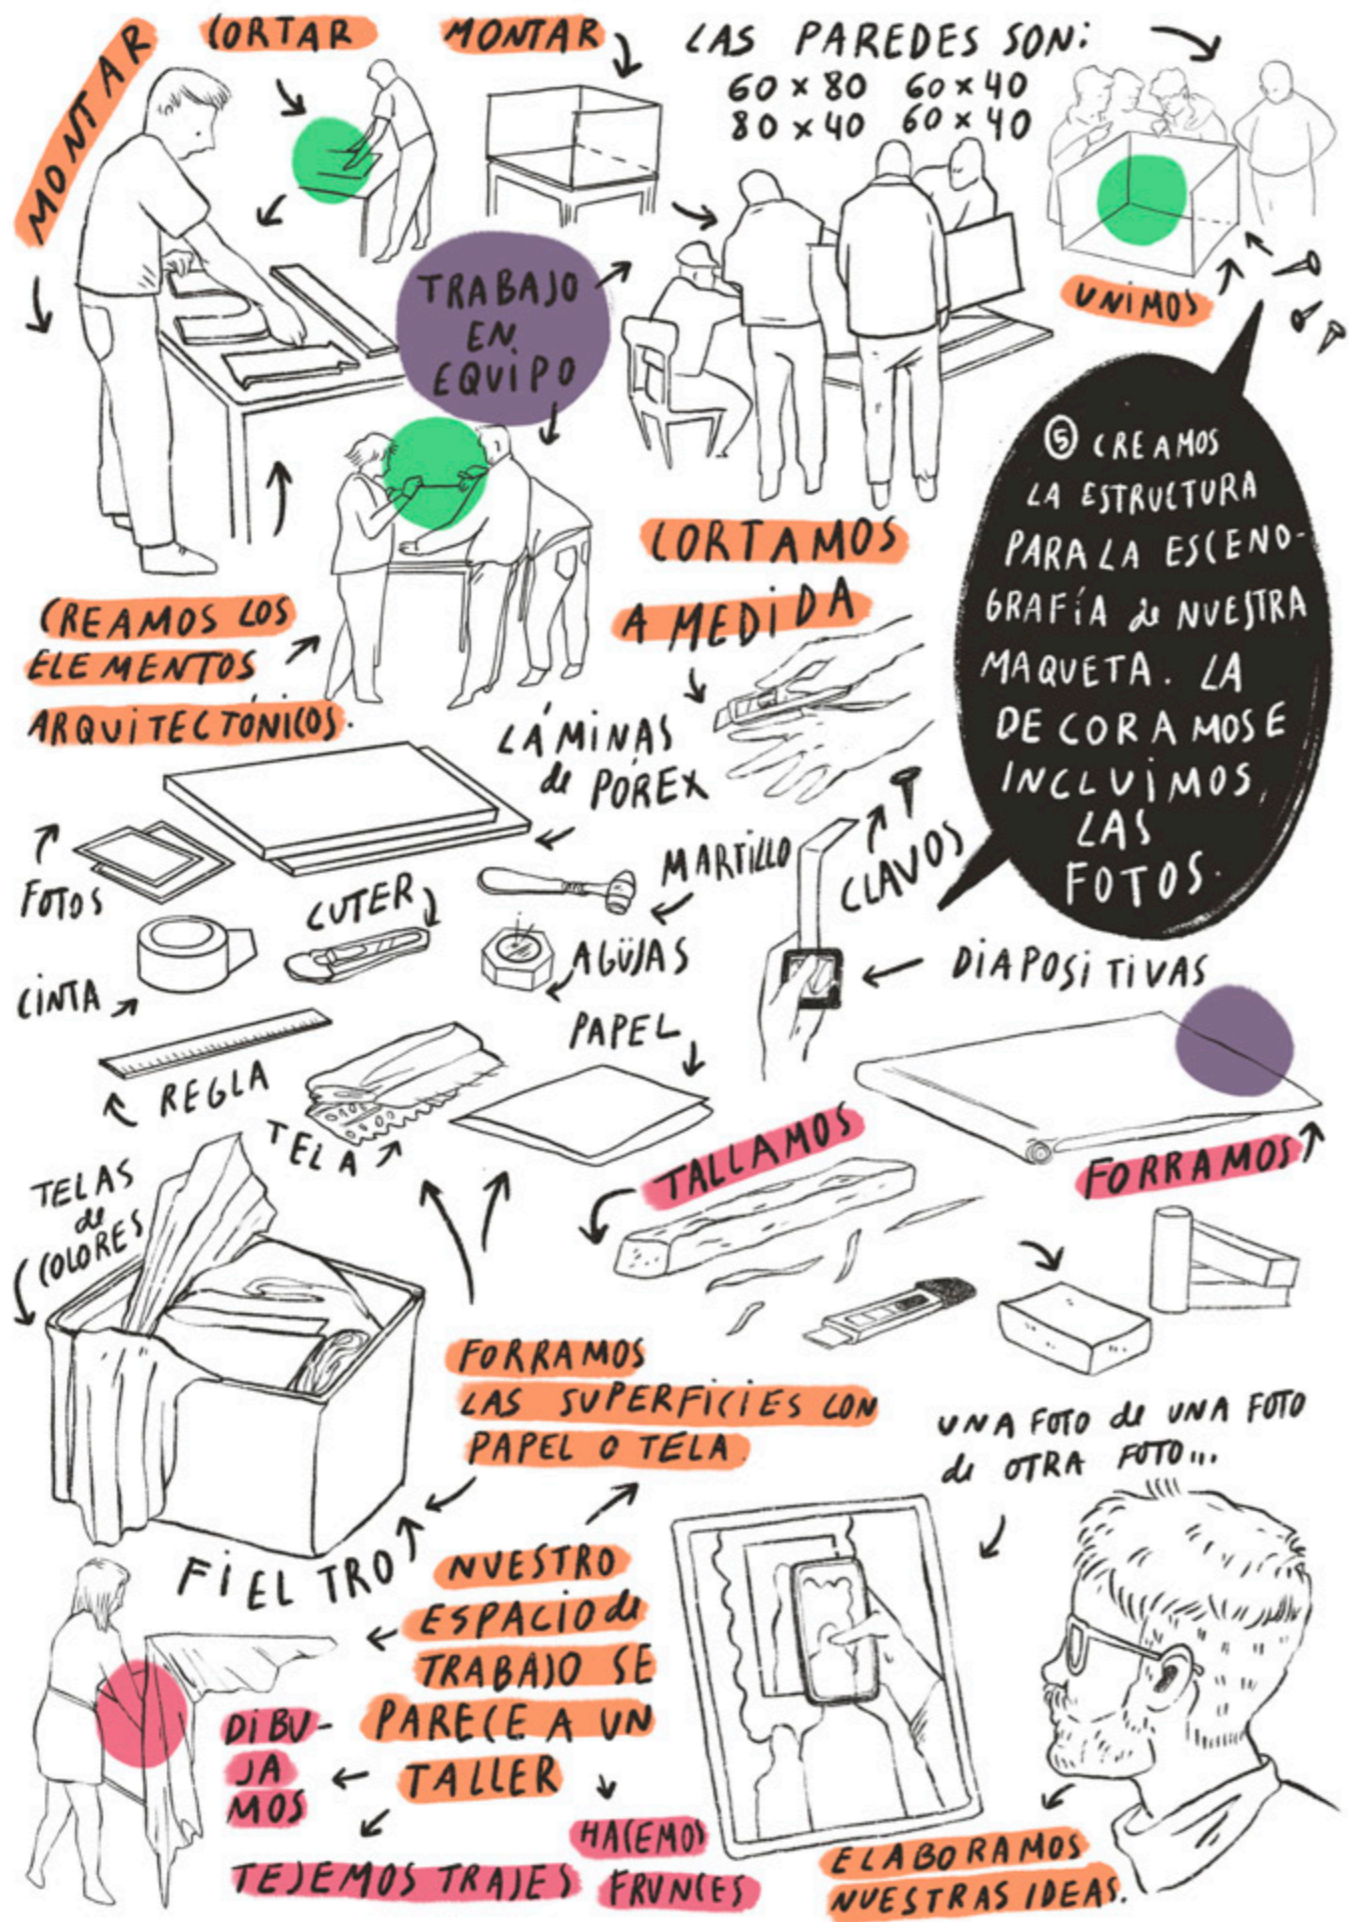 MONTAR
CORTAR
MONTAR
LAS PAREDES SON:
60 x 80 60 x 40
80 x 40 60 x 40
UNIMOS
TRABAJO
EN
EQUIPO
⑤ CREAMOS
LA ESTRUCTURA
PARA LA ESCENO-
GRAFÍA de NUESTRA
MAQUETA. LA
DECORAMOS E
INCLUIMOS
LAS
FOTOS.
CORTAMOS
A MEDIDA
CREAMOS LOS
ELEMENTOS
ARQUITECTÓNICOS.
LÁMINAS
de PÓREX
FOTOS
CUTER
MARTILLO
CLAVOS
CINTA
AGÜJAS
DIAPOSITIVAS
REGLA
TELA
PAPEL
TALLAMOS
FORRAMOS
TELAS
de
COLORES
FORRAMOS
LAS SUPERFICIES CON
PAPEL O TELA.
UNA FOTO de UNA FOTO
de OTRA FOTO...
FIELTRO
NUESTRO
ESPACIO de
TRABAJO SE
PARECE A UN
TALLER
DIBU-
JA
MOS
TEJEMOS TRAJES
HACEMOS
FRUNCES
ELABORAMOS
NUESTRAS IDEAS.